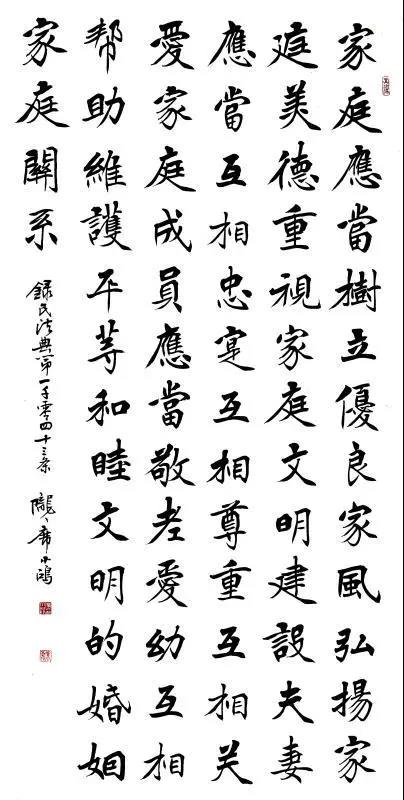 家庭應當樹立優良家風弘揚家
庭美德重視家庭文明建設夫妻
應當互相忠寔互相尊重互相关
愛家庭成員應當敬老愛幼互相
帮助維護平等和睦文明的婚姻
家庭關系
錄民法典第一千零四十三条 隴人席小鴻